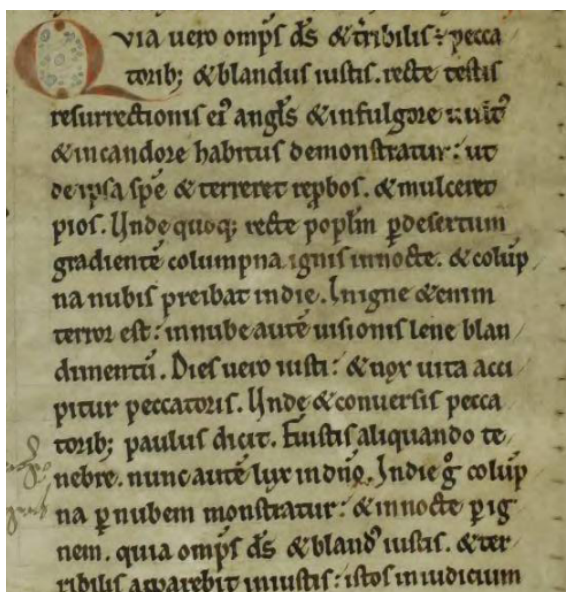 Quia uero omp̅s ds̅ & t̅ribilis: pecca
torib; & blandus iustis. recte testis
resurrectionis ei᷒ angl̅s & in fulgore uult᷒
& in candore habitus demonstratur: ut
de ipsa spe̅ & terreret rep̅bos. & mulceret
pios. Unde quoq; recte popl̅m p̱ desertum
gradiente̅ columpna ignis in nocte. & colu̅p
na nubis preibat in die. In igne & enim
terror est: in nube aute̅ uisionis lene blan
dimentu̅. Dies uero iusti: & nox uita acci
pitur peccatoris. Unde & conuersis pecca
torib; paulus dicit. Fuistis aliquando te
nebre. nunc aute̅ lux in dn̅o. In die g̊ colu̅p
na p̱ nubem monstratur: & in nocte p̱ ig
nem. quia omp̅s ds̅ & bland᷒ iustis. & ter
ribilis apparebit iniustis: istos in iudicium